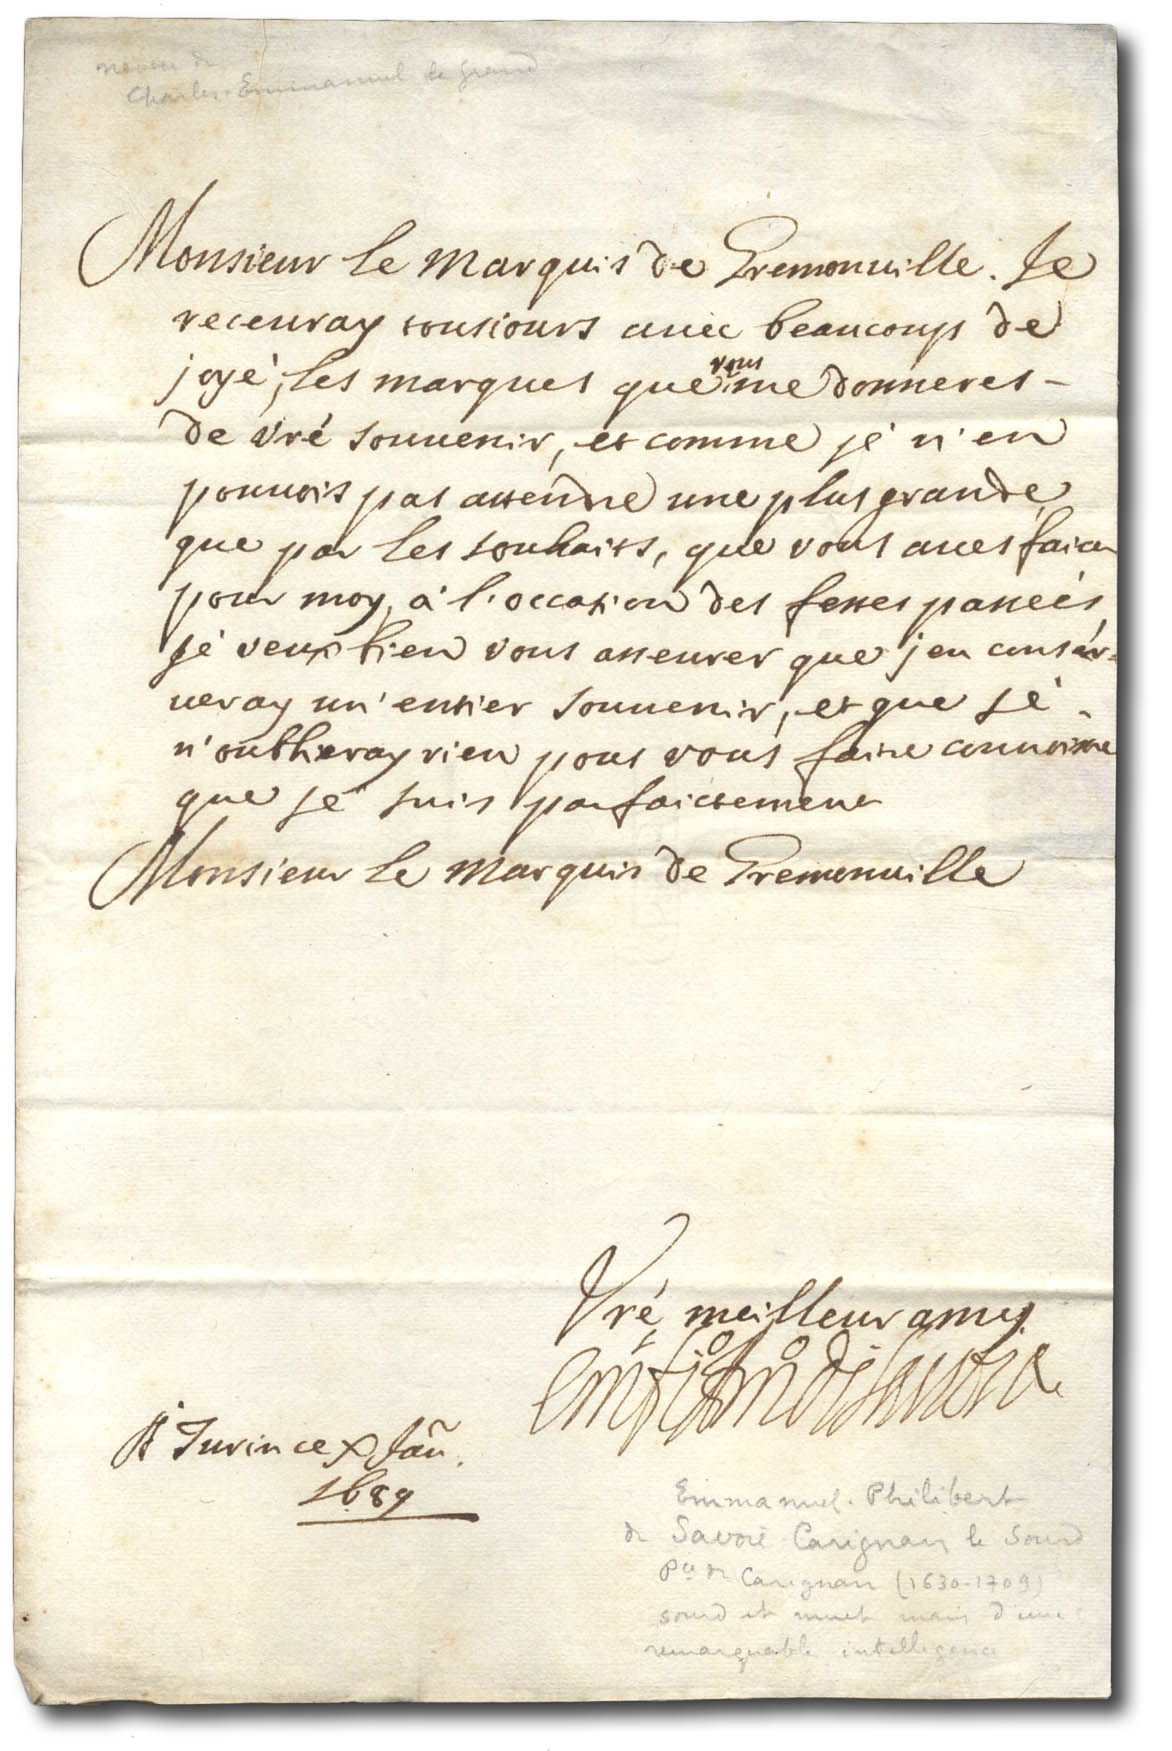 neveu de
Charles-Emmanuel le Grand
Monsieur le Marquis de Gremonuille. Je
receuray tousiours auec beaucoup de
joyé, les marques que vous me donneres -
de vré souuenir, et comme jé n'en
pouuois pas attendre une plus grande,
que par les souhaits, que vous aues faict
pour moy, a l'occasion des festes passeés
jé veux bien vous asseurer que j'en consér-
ueray un' entier souuenir, et que jé -
n'oublieray rien pour vous faire connoistre
que jé suis parfaictement
Monsieur le Marquis de Gremonuille
Vré meilleur amy
A Turin ce x Jañ.
1689
Emmanuel-Philibert
de Savoie Carignan le Sourd
Pce de Carignan (1630-1709)
sourd et muet mais d'une
remarquable intelligence